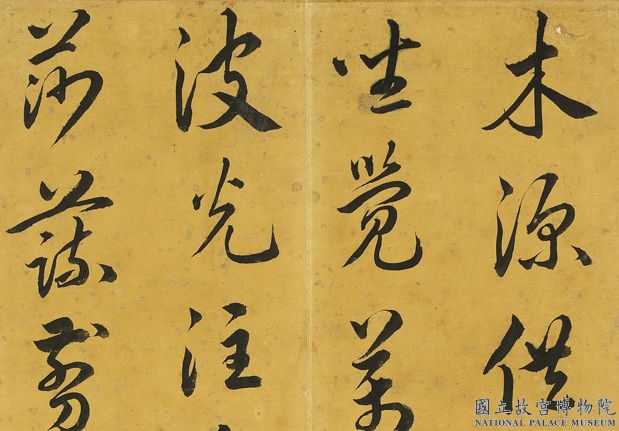 木源供
坐覺
波光注
莎蔬剪
國立故宮博物院
NATIONAL PALACE MUSEUM